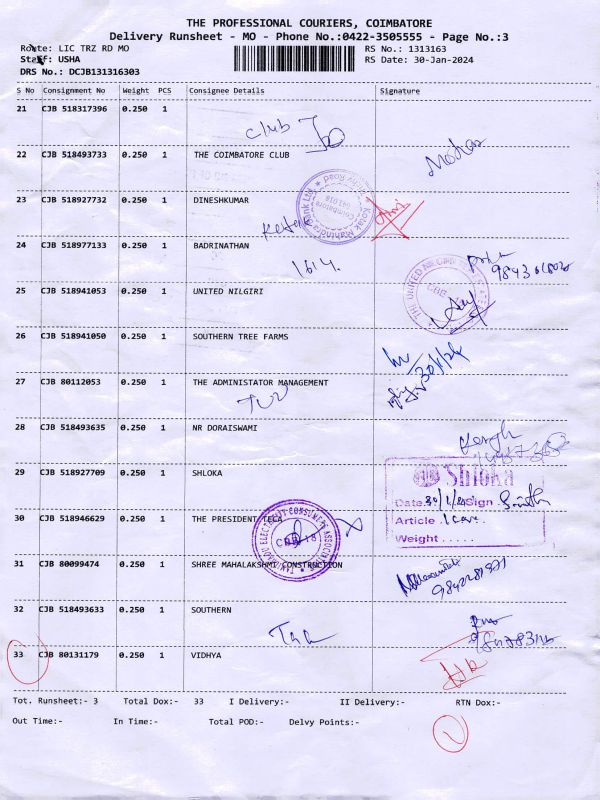 THE PROFESSIONAL COURIERS, COIMBATORE
Delivery Runsheet - MO - Phone No.:0422-3505555 - Page No.:3
Route: LIC TRZ RD MO
RS No.: 1313163
Staff: USHA
RS Date: 30-Jan-2024
DRS No.: DCJB131316303
S No Consignment No Weight PCS Consignee Details Signature
21 CJB 518317396 0.250 1
Club
22 CJB 518493733 0.250 1 THE COIMBATORE CLUB
23 CJB 518927732 0.250 1 DINESHKUMAR
Kotak Mahindra Bank Ltd
Coimbatore
641018
24 CJB 518977133 0.250 1 BADRINATHAN
1614.
25 CJB 518941053 0.250 1 UNITED NILGIRI
THE UNITED NILGIRI
CBE
26 CJB 518941050 0.250 1 SOUTHERN TREE FARMS
30/1/24
27 CJB 80112053 0.250 1 THE ADMINISTATOR MANAGEMENT
28 CJB 518493635 0.250 1 NR DORAISWAMI
29 CJB 518927709 0.250 1 SHLOKA
Shloka
Date 30/1/24 Sign
Article 1 Cov.
Weight .....
30 CJB 518946629 0.250 1 THE PRESIDENT TECA
TAMIL NADU ELECTRICITY CONSUMERS ASSOCIATION
31 CJB 80099474 0.250 1 SHREE MAHALAKSHMI CONSTRUCTION
32 CJB 518493633 0.250 1 SOUTHERN
33 CJB 80131179 0.250 1 VIDHYA
Tot. Runsheet:- 3 Total Dox:- 33 I Delivery:- II Delivery:- RTN Dox:-
Out Time:- In Time:- Total POD:- Delvy Points:-